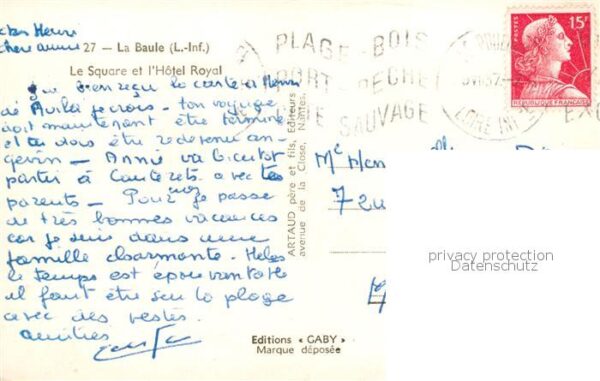 cher ami
27 — La Baule (L.-Inf.)
Le Square et l'Hôtel Royal
J'ai bien reçu ta carte
de je crois - ton voyage
doit maintenant être terminé
et tu dois être redevenu an-
gevin - Annie va bientôt
partir à Cauterets avec tes
parents - Pour moi je passe
de très bonnes vacances
car je suis dans une
famille charmante. Helas
le temps est épouvantable
il faut être sur la plage
avec des vestes.
amitiés
ARTAUD père et fils, Editeurs
avenue de la Close, Nantes.
Editions « GABY »
Marque déposée
PLAGE - BOIS
PORT - PECHE
SAUVAGE
LOIRE INF
POSTES
15F
REPUBLIQUE FRANÇAISE
privacy protection
Datenschutz